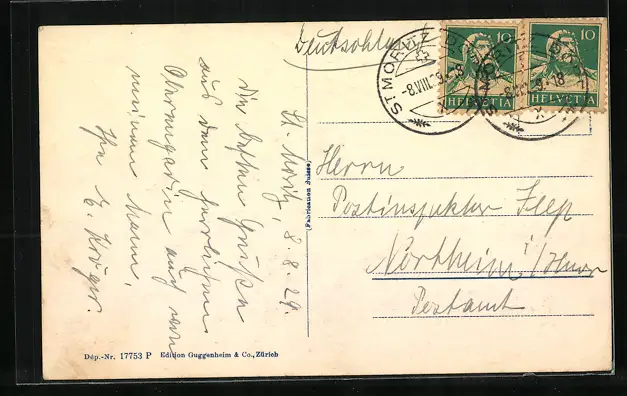 Deutschland
10
HELVETIA
10
HELVETIA
ST. MORITZ DORF
-8.VIII.29.-18
St. Moritz, 8.8.29.
Die besten Grüße
aus dem herrlichen
Oberengadin auch von
meinem Mann,
Ihre E. Krüger.
(Fabrication Suisse)
Herrn
Postinspektor Flep
Northeim i/Hann
Postamt
Dép.-Nr. 17753 P Edition Guggenheim & Co., Zürich